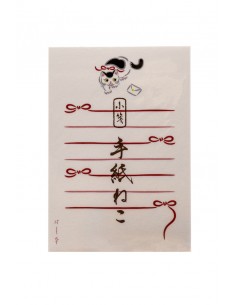 小箋
手紙ねこ